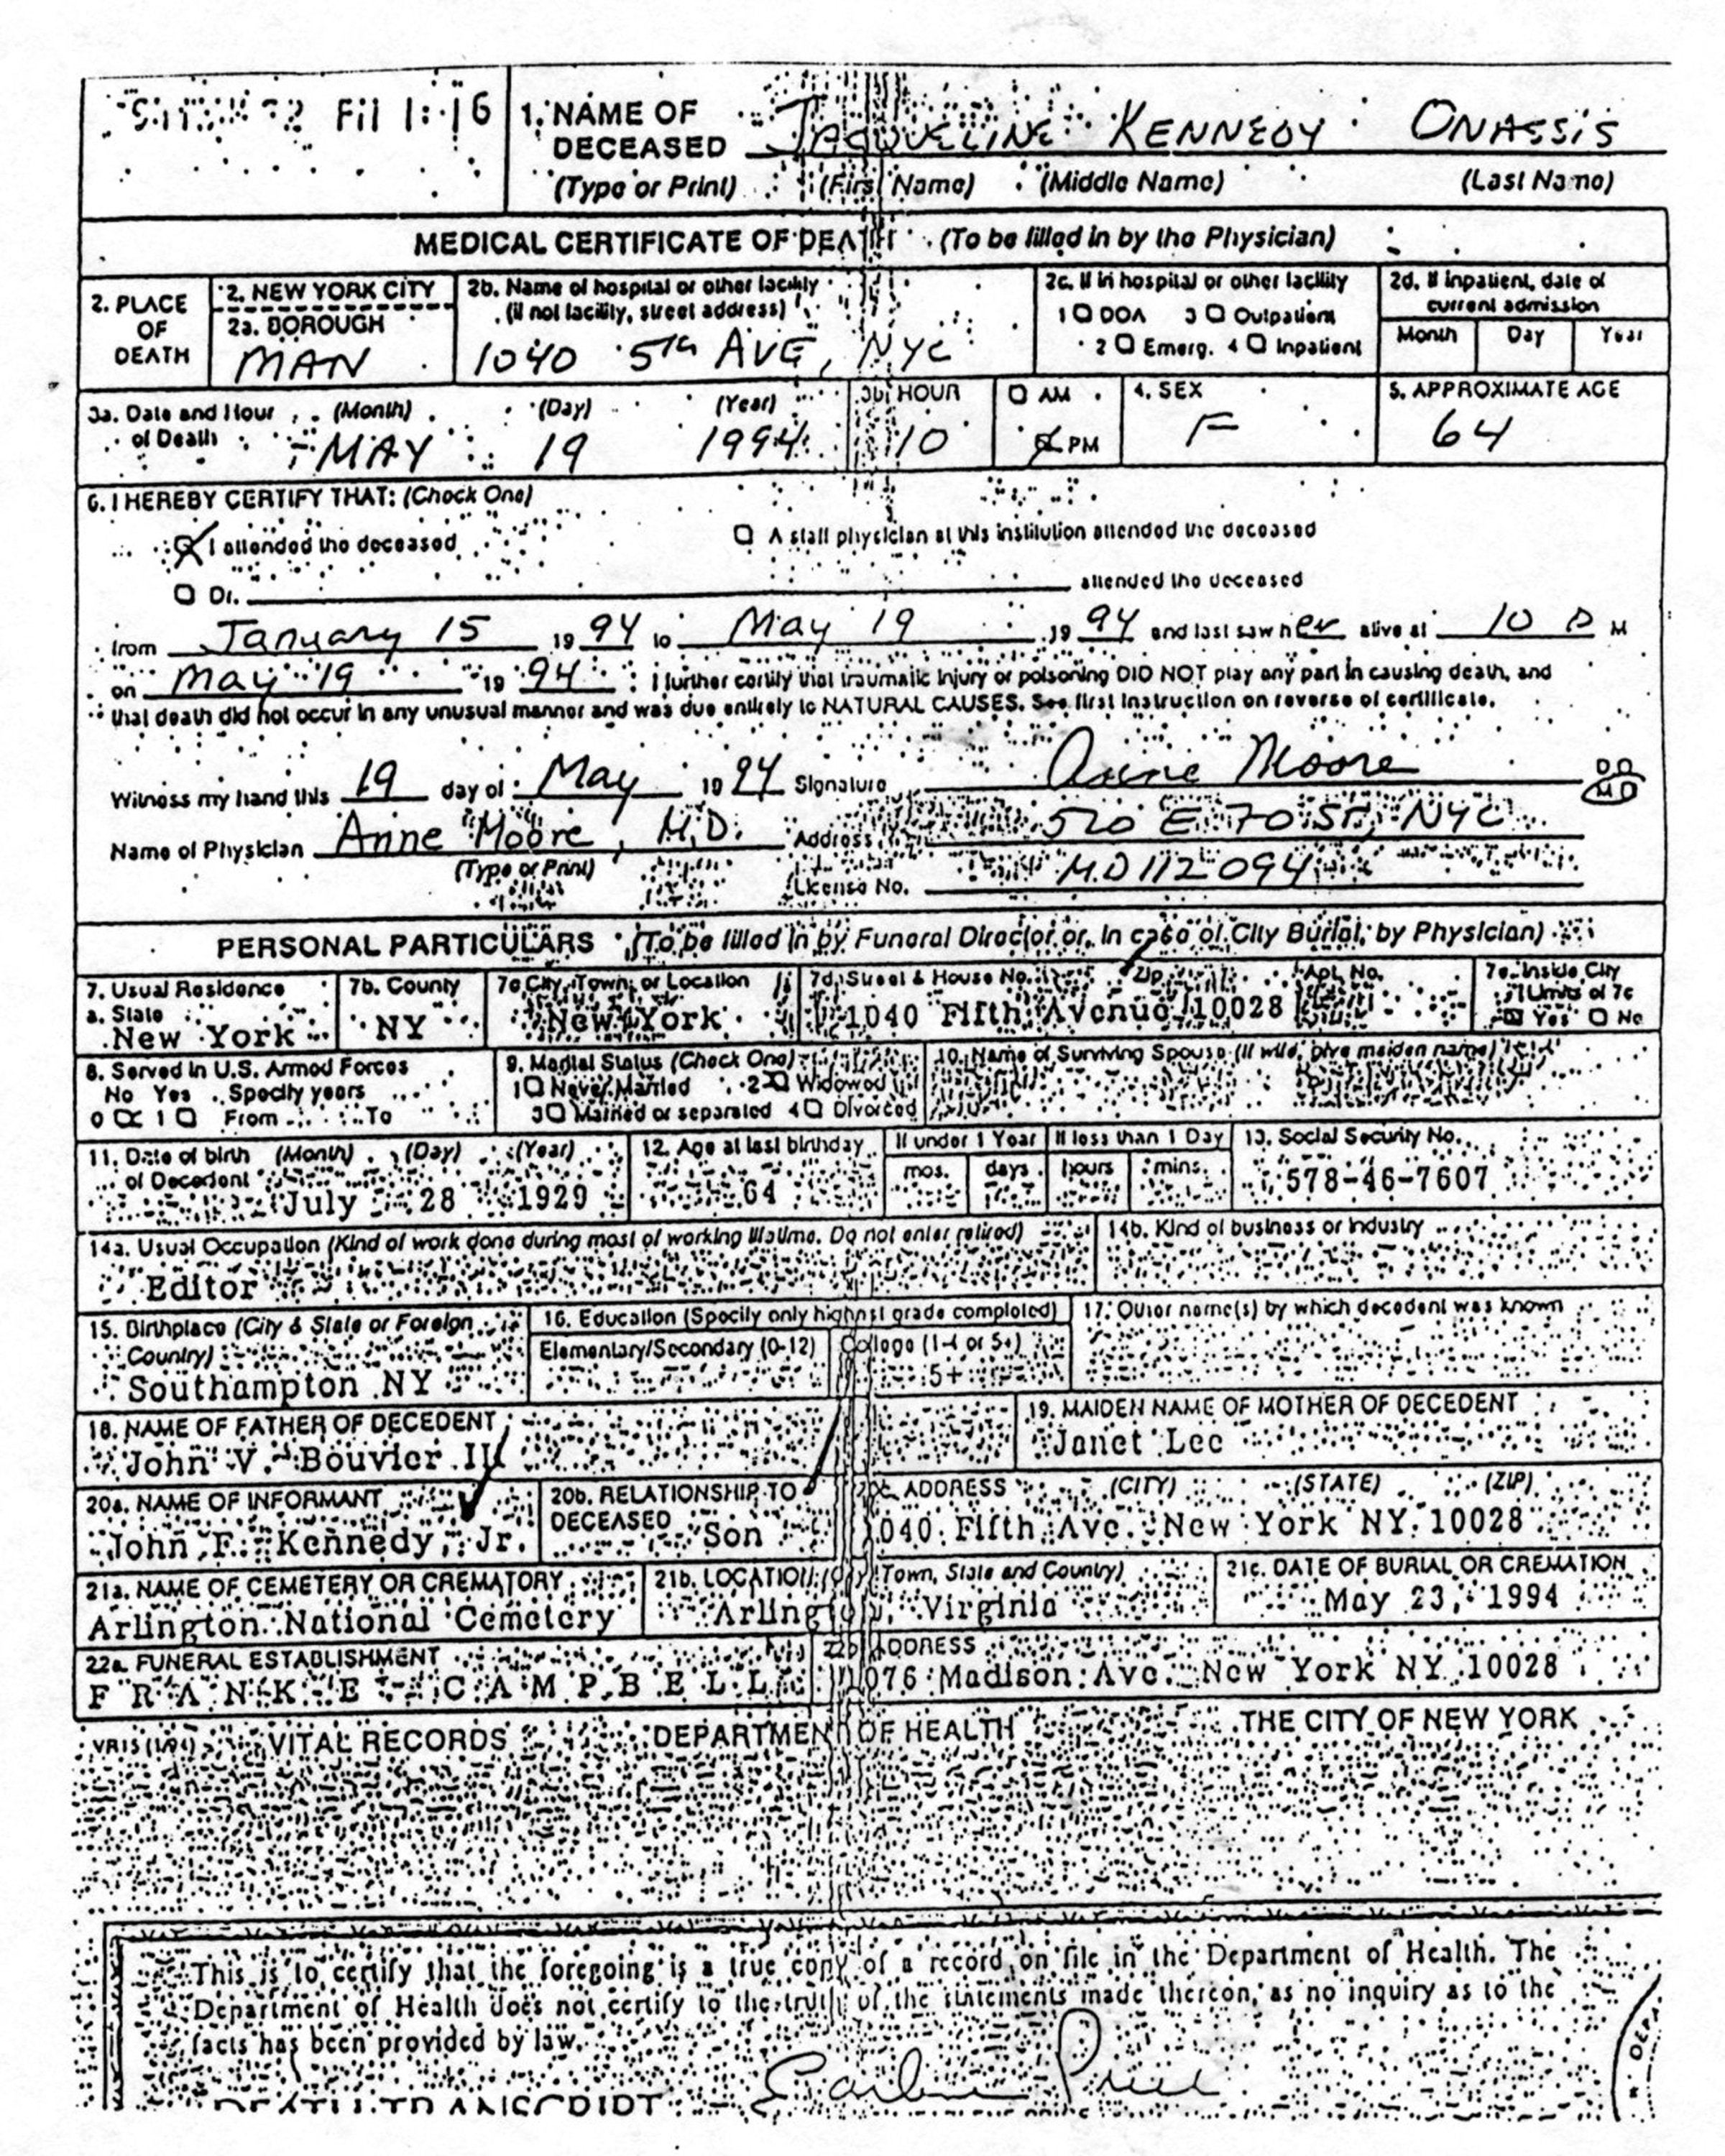 Fil 1:16
1. NAME OF DECEASED (Type or Print) JACQUELINE KENNEDY ONASSIS
(First Name) (Middle Name) (Last Name)
MEDICAL CERTIFICATE OF DEATH (To be filled in by the Physician)
2. PLACE OF DEATH
2. NEW YORK CITY
2a. BOROUGH
MAN
2b. Name of hospital or other facility
(if not facility, street address)
1040 5th AVE, NYC
2c. If in hospital or other facility
1 DOA 3 Outpatient
2 Emerg. 4 Inpatient
2d. If inpatient, date of current admission
Month Day Year
3a. Date and Hour of Death (Month) (Day) (Year)
MAY 19 1994
3b. HOUR
10
AM
PM
4. SEX
F
5. APPROXIMATE AGE
64
6. I HEREBY CERTIFY THAT: (Check One)
I attended the deceased
A staff physician at this institution attended the deceased
Dr. attended the deceased
from January 15 19 94 to May 19 19 94 and last saw her alive at 10 P M
on May 19 19 94 I further certify that traumatic injury or poisoning DID NOT play any part in causing death, and
that death did not occur in any unusual manner and was due entirely to NATURAL CAUSES. See first instruction on reverse of certificate.
Witness my hand this 19 day of May 19 94 Signature Anne Moore DO MD
Name of Physician Anne Moore, M.D. Address 520 E 70 ST, NYC
(Type or Print)
License No. M.D 112094
PERSONAL PARTICULARS (To be filled in by Funeral Director or, in case of City Burial, by Physician)
7. Usual Residence
a. State
New York
7b. County
NY
7c City, Town, or Location
New York
7d. Street & House No. Zip Apt. No.
1040 Fifth Avenue 10028
7e. Inside City Limits of 7c
Yes No
8. Served in U.S. Armed Forces
No Yes Specify years
0 1 From To
9. Marital Status (Check One)
1 Never Married 2 Widowed
3 Married or separated 4 Divorced
10. Name of Surviving Spouse (If wife, give maiden name)
11. Date of birth of Decedent (Month) (Day) (Year)
July 28 1929
12. Age at last birthday
64
If under 1 Year
mos. days
If less than 1 Day
hours mins.
13. Social Security No.
578-46-7607
14a. Usual Occupation (Kind of work done during most of working lifetime. Do not enter retired)
Editor
14b. Kind of business or industry
15. Birthplace (City & State or Foreign Country)
Southampton NY
16. Education (Specify only highest grade completed)
Elementary/Secondary (0-12) College (1-4 or 5+)
5+
17. Other name(s) by which decedent was known
18. NAME OF FATHER OF DECEDENT
John V. Bouvier III
19. MAIDEN NAME OF MOTHER OF DECEDENT
Janet Lee
20a. NAME OF INFORMANT
John F. Kennedy, Jr.
20b. RELATIONSHIP TO DECEASED
Son
ADDRESS (CITY) (STATE) (ZIP)
040 Fifth Ave. New York NY 10028
21a. NAME OF CEMETERY OR CREMATORY
Arlington National Cemetery
21b. LOCATION (City, Town, State and Country)
Arlington, Virginia
21c. DATE OF BURIAL OR CREMATION
May 23, 1994
22a. FUNERAL ESTABLISHMENT
FRANK E CAMPBELL
22b ADDRESS
1076 Madison Ave. New York NY 10028
VR15 VITAL RECORDS DEPARTMENT OF HEALTH THE CITY OF NEW YORK
This is to certify that the foregoing is a true copy of a record on file in the Department of Health. The
Department of Health does not certify to the truth of the statements made thereon, as no inquiry as to the
facts has been provided by law.
DEATH TRANSCRIPT